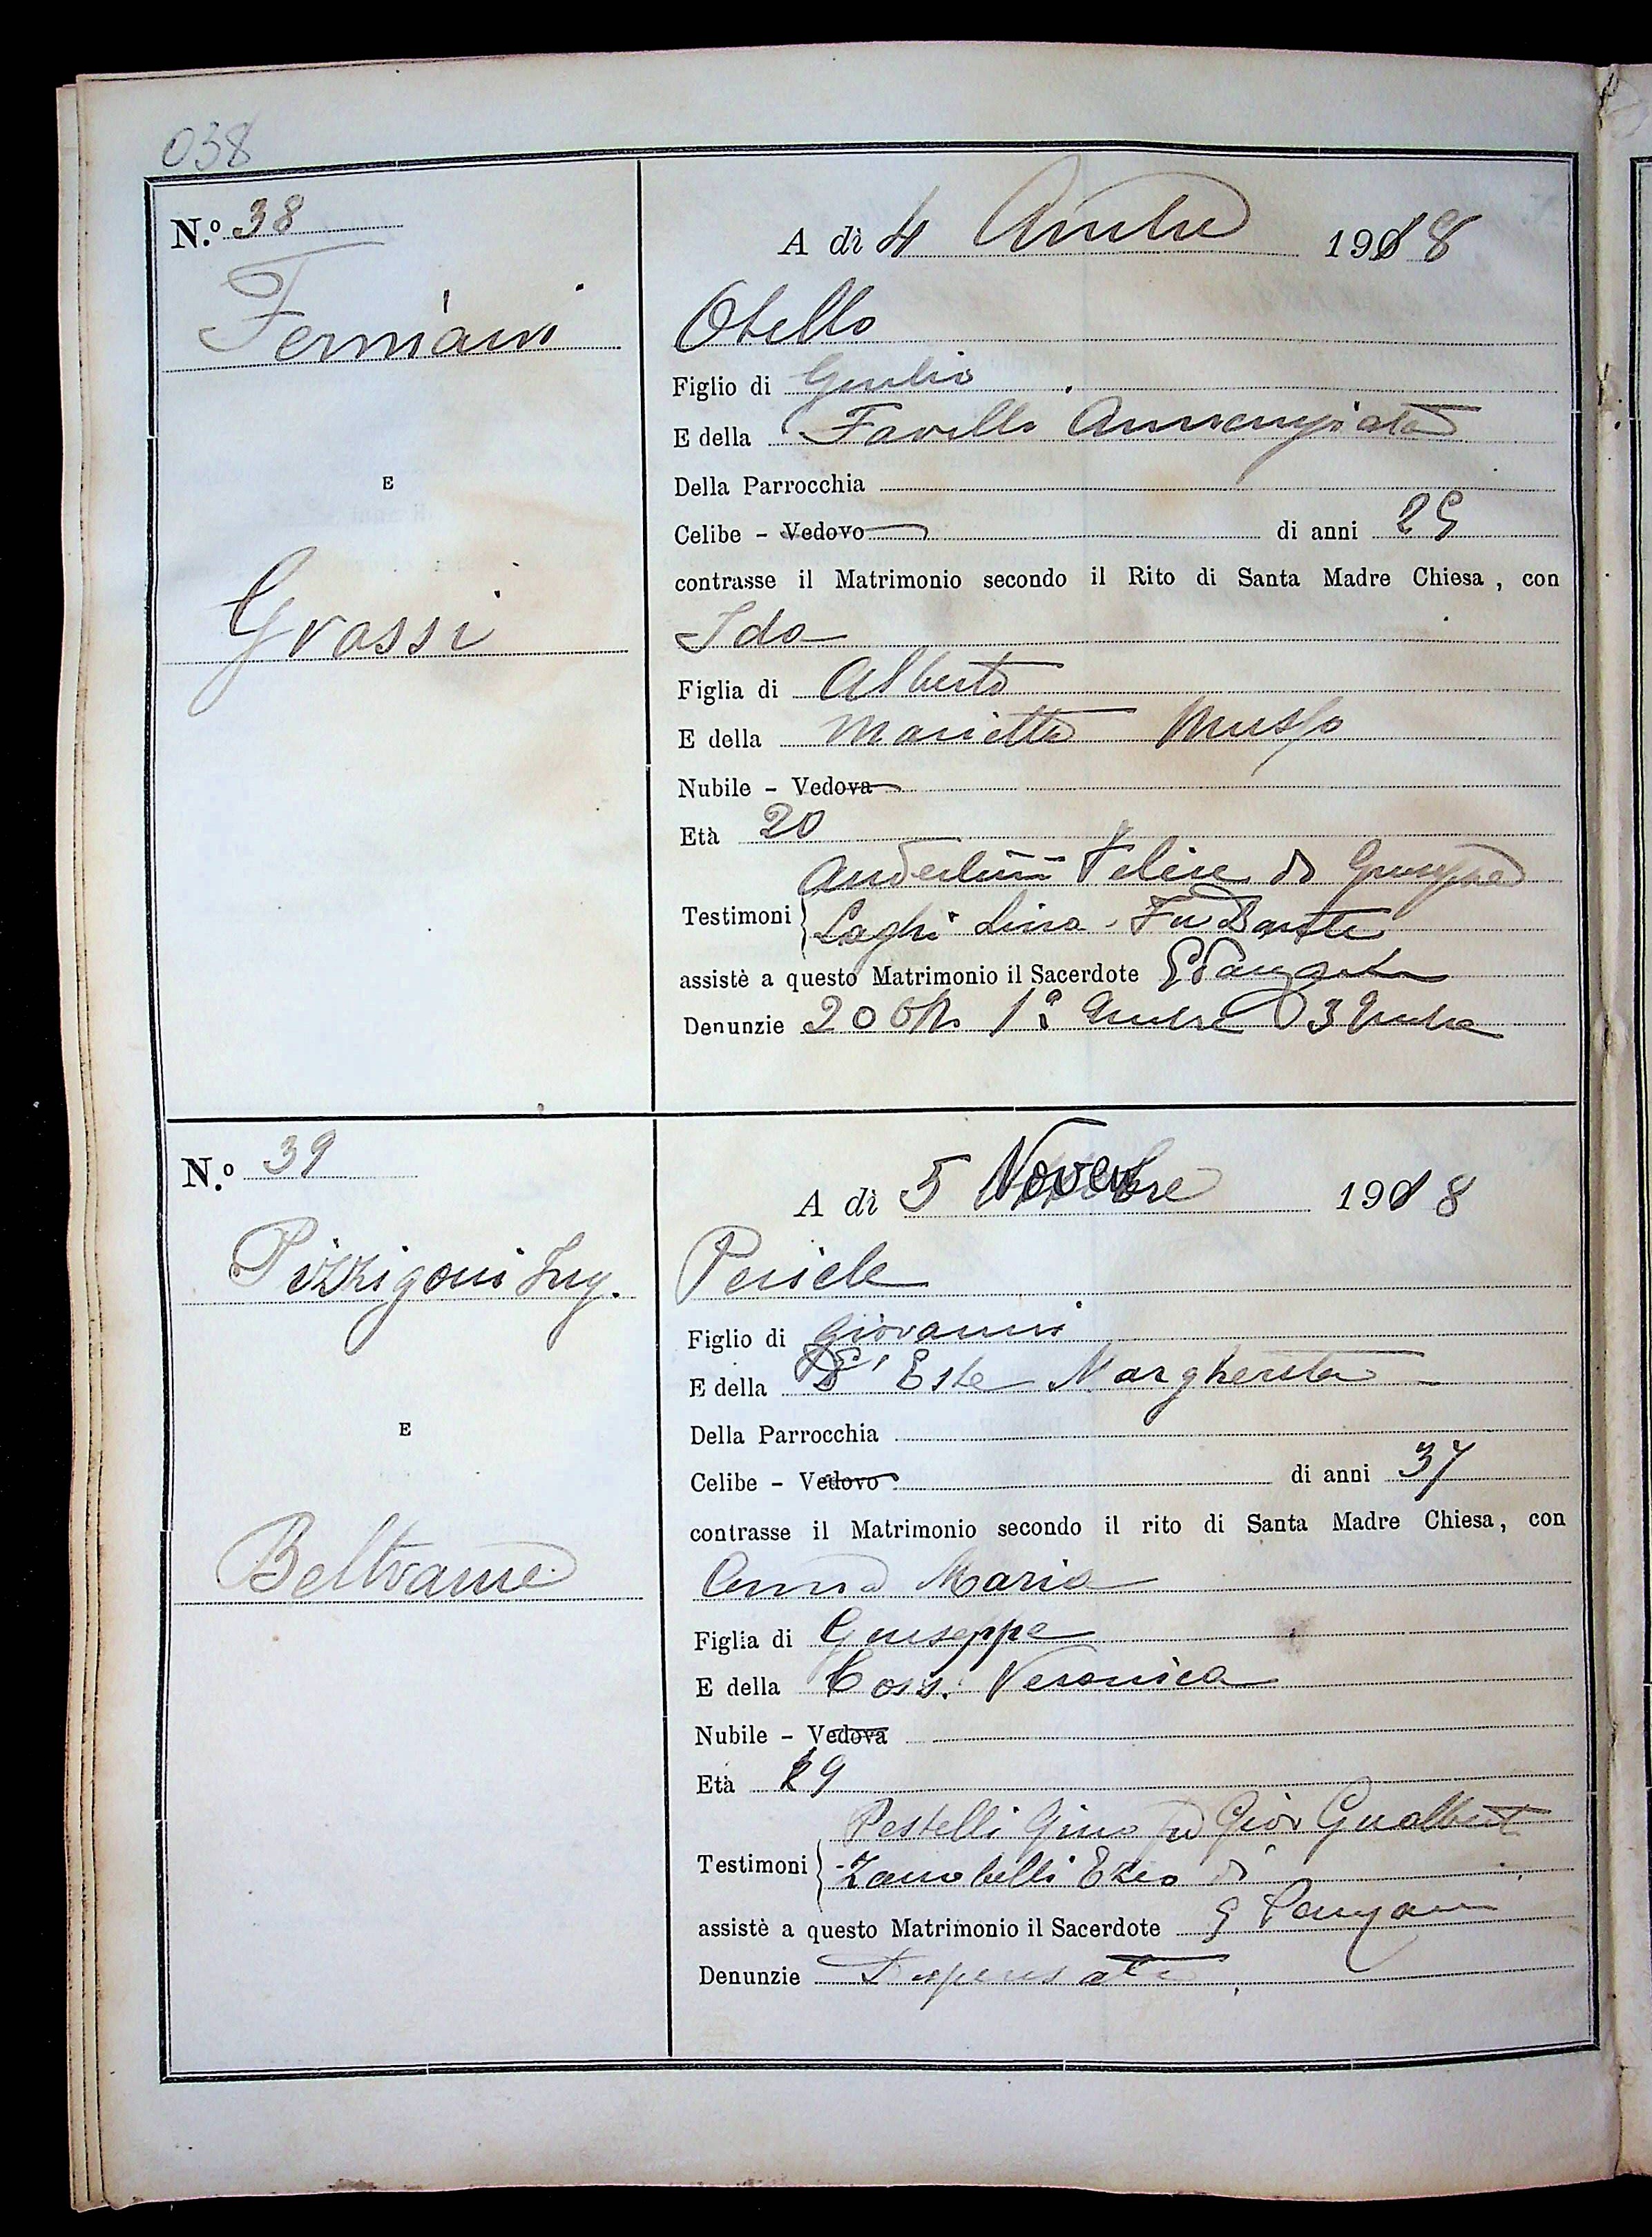 038
N.º 38
A dì 4 9mbre 1918
Fermiani
Otello
Figlio di Giulio
E della Favilli Annunziata
Della Parrocchia
E
Celibe - Vedovo di anni 25
contrasse il Matrimonio secondo il Rito di Santa Madre Chiesa, con
Grassi
Ida
Figlia di Alberto
E della Marietta Musso
Nubile - Vedova
Età 20
Anderlini Felice di Giuseppe
Testimoni Laghi Lina Fu Dante
assistè a questo Matrimonio il Sacerdote
Denunzie 20 1º 3
N.º 39
A dì 5 Novembre 1918
Pizzigoni Ing.
Pericle
Figlio di Giovanni
E della D'Este Margherita
Della Parrocchia
E
Celibe - Vedovo di anni 37
contrasse il Matrimonio secondo il rito di Santa Madre Chiesa, con
Beltrame
Anna Maria
Figlia di Giuseppe
E della Veronica
Nubile - Vedova
Età 29
Pestelli Gino fu Giov Gualbert
Testimoni Zanobelli Ezio di
assistè a questo Matrimonio il Sacerdote G
Denunzie Dispensati